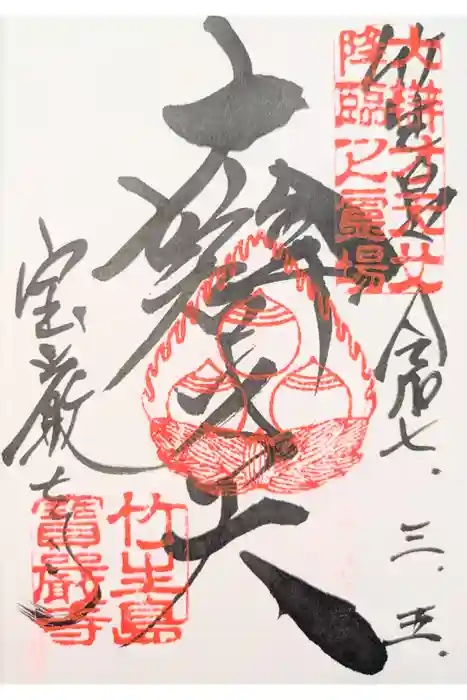 大辯才天女
降臨之靈場
令和七.三.五.
大辯才天
宝厳寺
竹生島
寶嚴寺